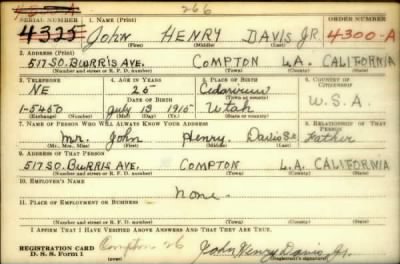 266
SERIAL NUMBER 1. NAME (Print) ORDER NUMBER
4325 JOHN HENRY DAVIS JR. 4300-A
(First) (Middle) (Last)
2. ADDRESS (Print)
517 SO. BURRIS AVE. COMPTON L.A. CALIFORNIA
(Number and street or R. F. D. number) (Town) (County) (State)
3. TELEPHONE 4. AGE IN YEARS 5. PLACE OF BIRTH 6. COUNTRY OF CITIZENSHIP
NE 25 Cedarview
DATE OF BIRTH (Town or county)
1-5460 July 13 1915 Utah U.S.A.
(Exchange) (Number) (Mo.) (Day) (Yr.) (State or country)
7. NAME OF PERSON WHO WILL ALWAYS KNOW YOUR ADDRESS 8. RELATIONSHIP OF THAT PERSON
Mr. John Henry Davis Sr. Father
(Mr., Mrs., Miss) (First) (Middle) (Last)
9. ADDRESS OF THAT PERSON
517 SO. BURRIS AVE. COMPTON L.A. CALIFORNIA
(Number and street or R. F. D. number) (Town) (County) (State)
10. EMPLOYER'S NAME
None
11. PLACE OF EMPLOYMENT OR BUSINESS
(Number and street or R. F. D. number) (Town) (County) (State)
I AFFIRM THAT I HAVE VERIFIED ABOVE ANSWERS AND THAT THEY ARE TRUE.
REGISTRATION CARD Compton 26 John Henry Davis Jr.
D. S. S. Form 1 (Registrant's signature)